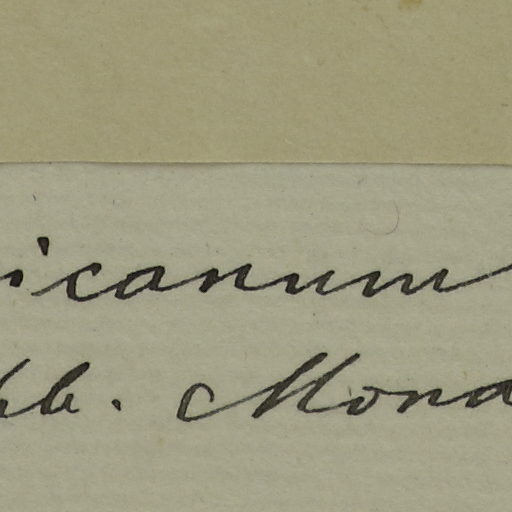 icanum
bb. Mona